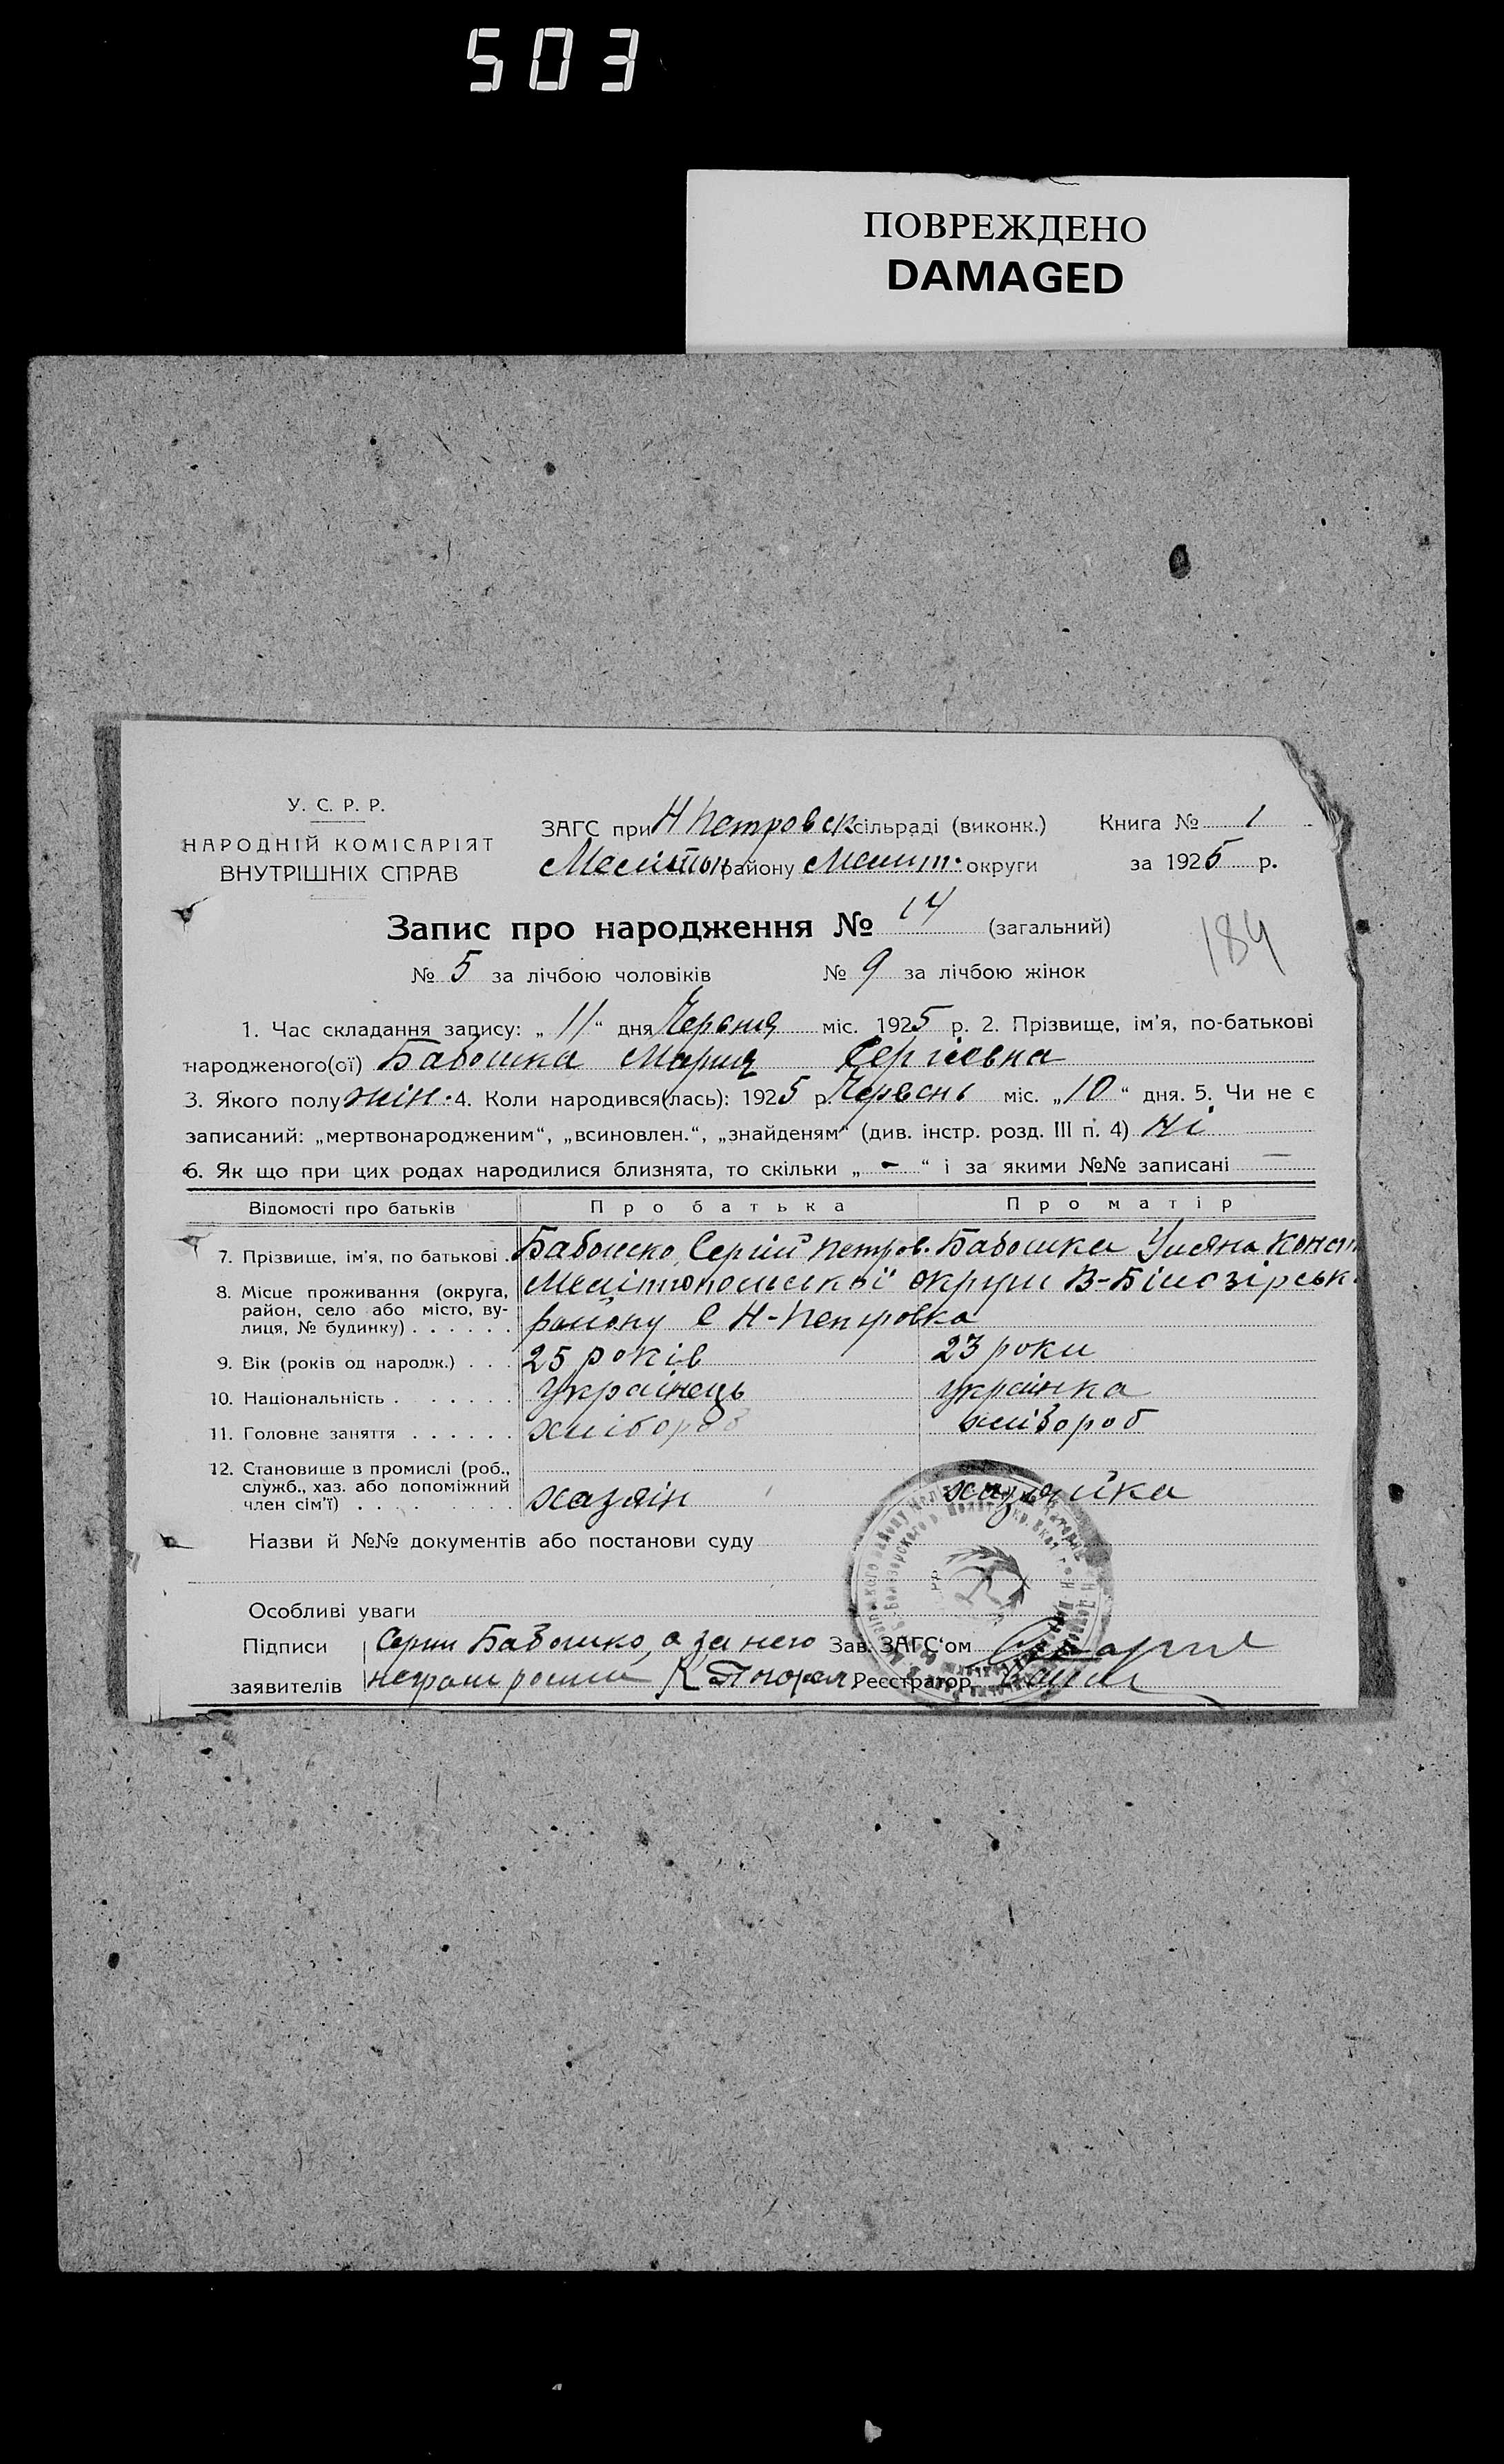 503
ПОВРЕЖДЕНО
DAMAGED
У. С. Р. Р.
НАРОДНІЙ КОМІСАРІЯТ
ВНУТРІШНІХ СПРАВ
ЗАГС при Н Петровск сільраді (виконк.) Книга № 1
Мелітоп району Меліт. округи за 1925 р.
Запис про народження № 14 (загальний)
184
№ 5 за лічбою чоловіків № 9 за лічбою жінок
1. Час складання запису: „ 11 “ дня Червня міс. 1925 р. 2. Прізвище, ім'я, по-батькові
народженого(ої) Бабошка Мария Сергієвна
3. Якого полу жін. 4. Коли народився(лась): 1925 р. Червень міс. „10“ дня. 5. Чи не є
записаний: „мертвонародженим“, „всиновлен.“, „знайденям“ (див. інстр. розд. III п. 4) Ні
6. Як що при цих родах народилися близнята, то скільки „ - “ і за якими №№ записані —
Відомості про батьків Про батька Про матір
7. Прізвище, ім'я, по батькові . Бабошко Сергій Петров. Бабошка Уляна Конст
8. Місце проживання (округа, район, село або місто, вулиця, № будинку) . . . . . . Мелітопольської округи В-Білозірськ.
району с Н-Петровка
9. Вік (років од народж.) . . . 25 років 23 роки
10. Національність . . . . . . . українець українка
11. Головне заняття . . . . . . хлібороб хлібороб
12. Становище в промислі (роб.,
служб., хаз. або допоміжний
член сім'ї) . . . . . . . . хазяін хазяйка
Назви й №№ документів або постанови суду
Особливі уваги
Підписи Сергій Бабошко, а за него Зав. ЗАГС'ом
заявителів неграм росписи К Реєстратор